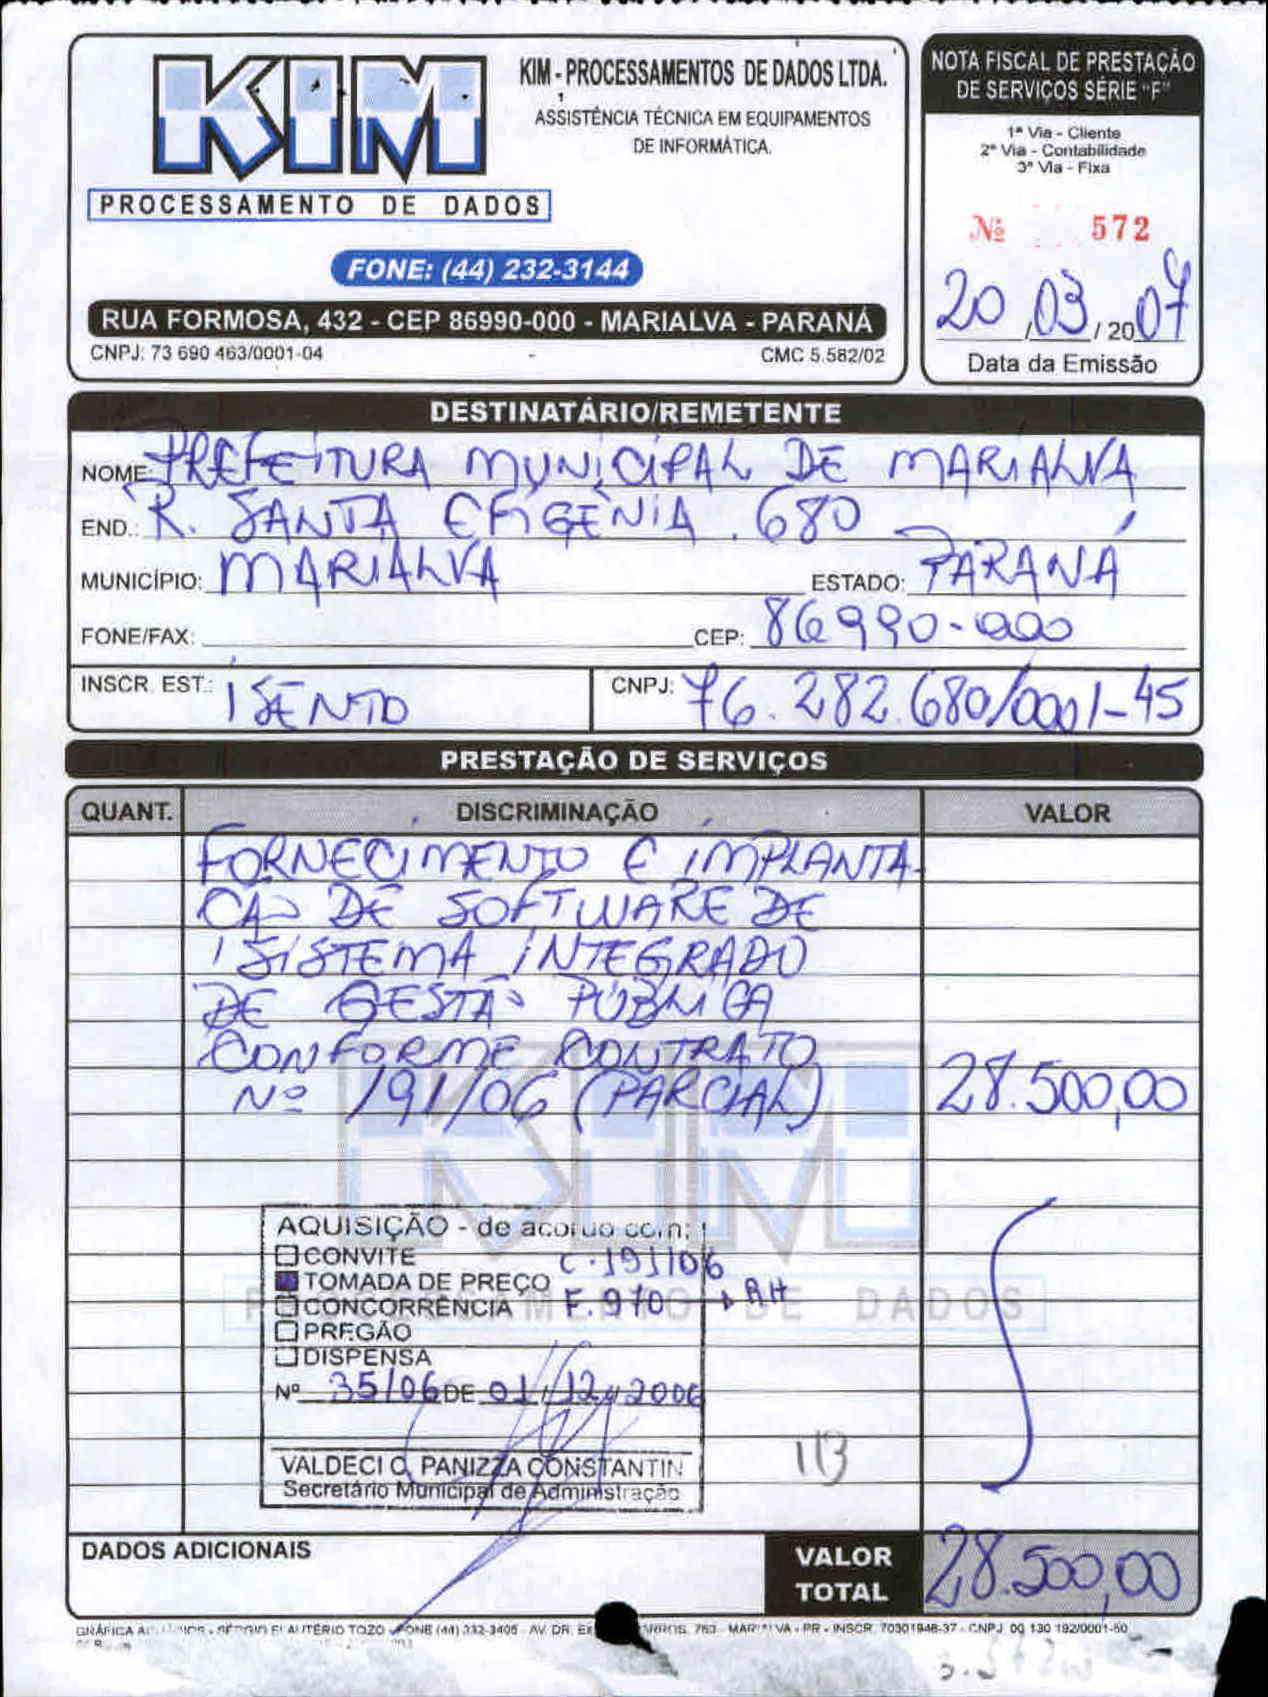 KIM
PROCESSAMENTO DE DADOS
KIM - PROCESSAMENTOS DE DADOS LTDA.
ASSISTÊNCIA TÉCNICA EM EQUIPAMENTOS
DE INFORMÁTICA.
FONE: (44) 232-3144
RUA FORMOSA, 432 - CEP 86990-000 - MARIALVA - PARANÁ
CNPJ: 73 690 463/0001-04 CMC 5.582/02
NOTA FISCAL DE PRESTAÇÃO
DE SERVIÇOS SÉRIE "F"
1ª Via - Cliente
2ª Via - Contabilidade
3ª Via - Fixa
Nº 572
20/03/2007
Data da Emissão
DESTINATÁRIO/REMETENTE
NOME: PREFEITURA MUNICIPAL DE MARIALVA
END.: R. SANTA EFIGÊNIA, 680
MUNICÍPIO: MARIALVA ESTADO: PARANÁ
FONE/FAX: CEP: 86990-000
INSCR. EST.: ISENTO CNPJ: 76.282.680/0001-45
PRESTAÇÃO DE SERVIÇOS
QUANT. DISCRIMINAÇÃO VALOR
FORNECIMENTO E IMPLANTA-
ÇÃO DE SOFTWARE DE
SISTEMA INTEGRADO
DE GESTÃO PÚBLICA
CONFORME CONTRATO
Nº 191/06 (PARCIAL) 28.500,00
KIM
DE DADOS
AQUISIÇÃO - de acordo com:
CONVITE C.191/06
TOMADA DE PREÇO
CONCORRÊNCIA F.970
PREGÃO
DISPENSA
Nº 35/06 DE 01/12/2006
VALDECI C. PANIZZA CONSTANTIN
Secretário Municipal de Administração
113
DADOS ADICIONAIS
VALOR
TOTAL 28.500,00
GRÁFICA SÉRGIO ELAUTÉRIO TOZO - FONE (44) 232-3405 - AV. DR. 763 - MARIALVA - PR - INSCR. 70301946-37 - CNPJ 00 130 192/0001-60